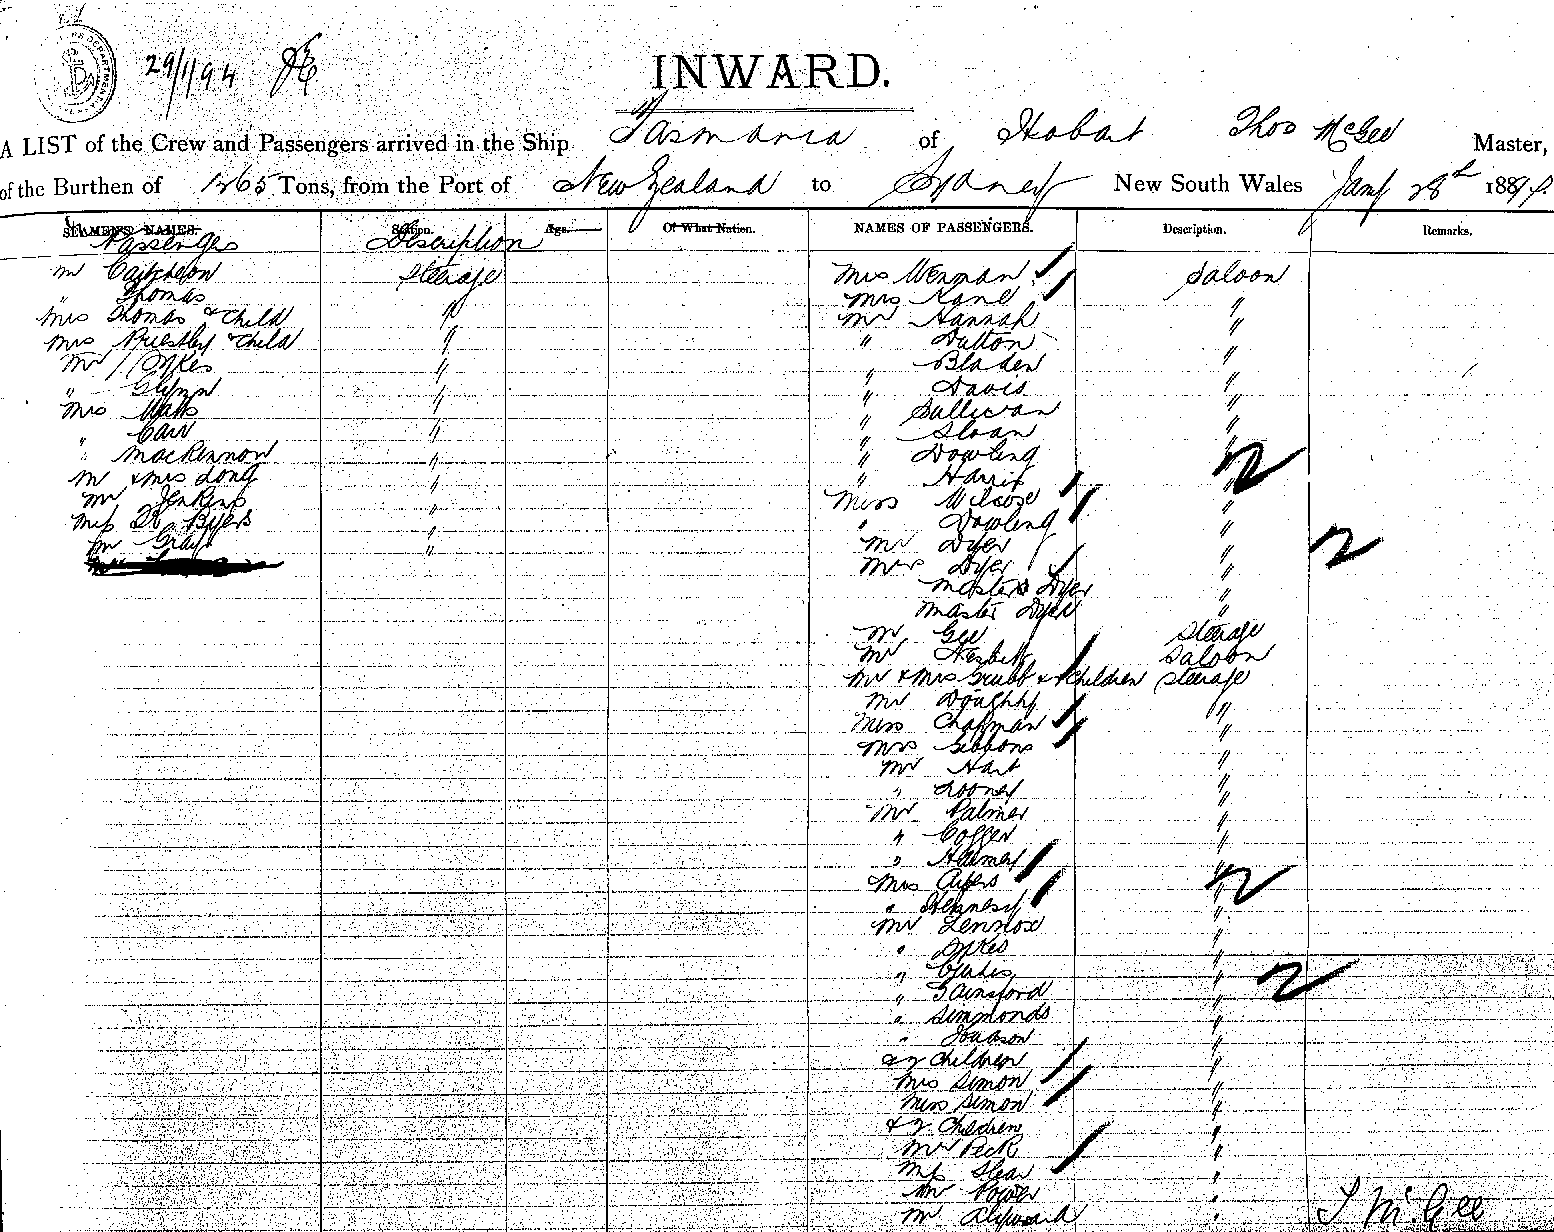 29/1/94
INWARD.
A LIST of the Crew and Passengers arrived in the Ship Tasmania of Hobart Thos McGee Master,
of the Burthen of 1265 Tons, from the Port of New Zealand to Sydney New South Wales Jany 28th 1894
SEAMEN'S NAMES. Station. Age. Of What Nation. NAMES OF PASSENGERS. Description. Remarks.
Passengers Description
Mr Steerage
" Thomas "
Mrs Thomas & Child "
Mrs Priestley & Child "
Mr Sykes "
" Glynn "
Mrs Watts "
" Carr "
" MacKennon "
Mr & Mrs Long "
Mr Jenkins "
Miss De Byers "
Mr Gray "
Mrs Wenman Saloon
Mrs Kane "
Mr Hannah "
" Dutton
" Bladen "
" Davis "
" Sullivan "
" Sloan "
" Dowling "
" Harris "
Miss Wilcox "
" Dowling "
Mr Dyer "
Mrs Dyer "
Masters Dyer "
Master Dyer "
Mr Gee Steerage
Mr Nesbitt Saloon
Mr & Mrs Grubb & Children Steerage
Mr Doughty "
Miss Chapman "
Mrs Gibbons "
Mr Hart "
" Looney "
Mr Palmer "
" Coffer "
" "
Mrs Ayers "
" Hennesy "
Mr Lennox "
" Sykes "
" "
" Gainsford "
" Simmonds "
" "
& 2 Children "
Mrs Simon "
Miss Simon "
& 2 Children "
Mr Peck "
"
Mr Power "
Mr Aylward "
T McGee